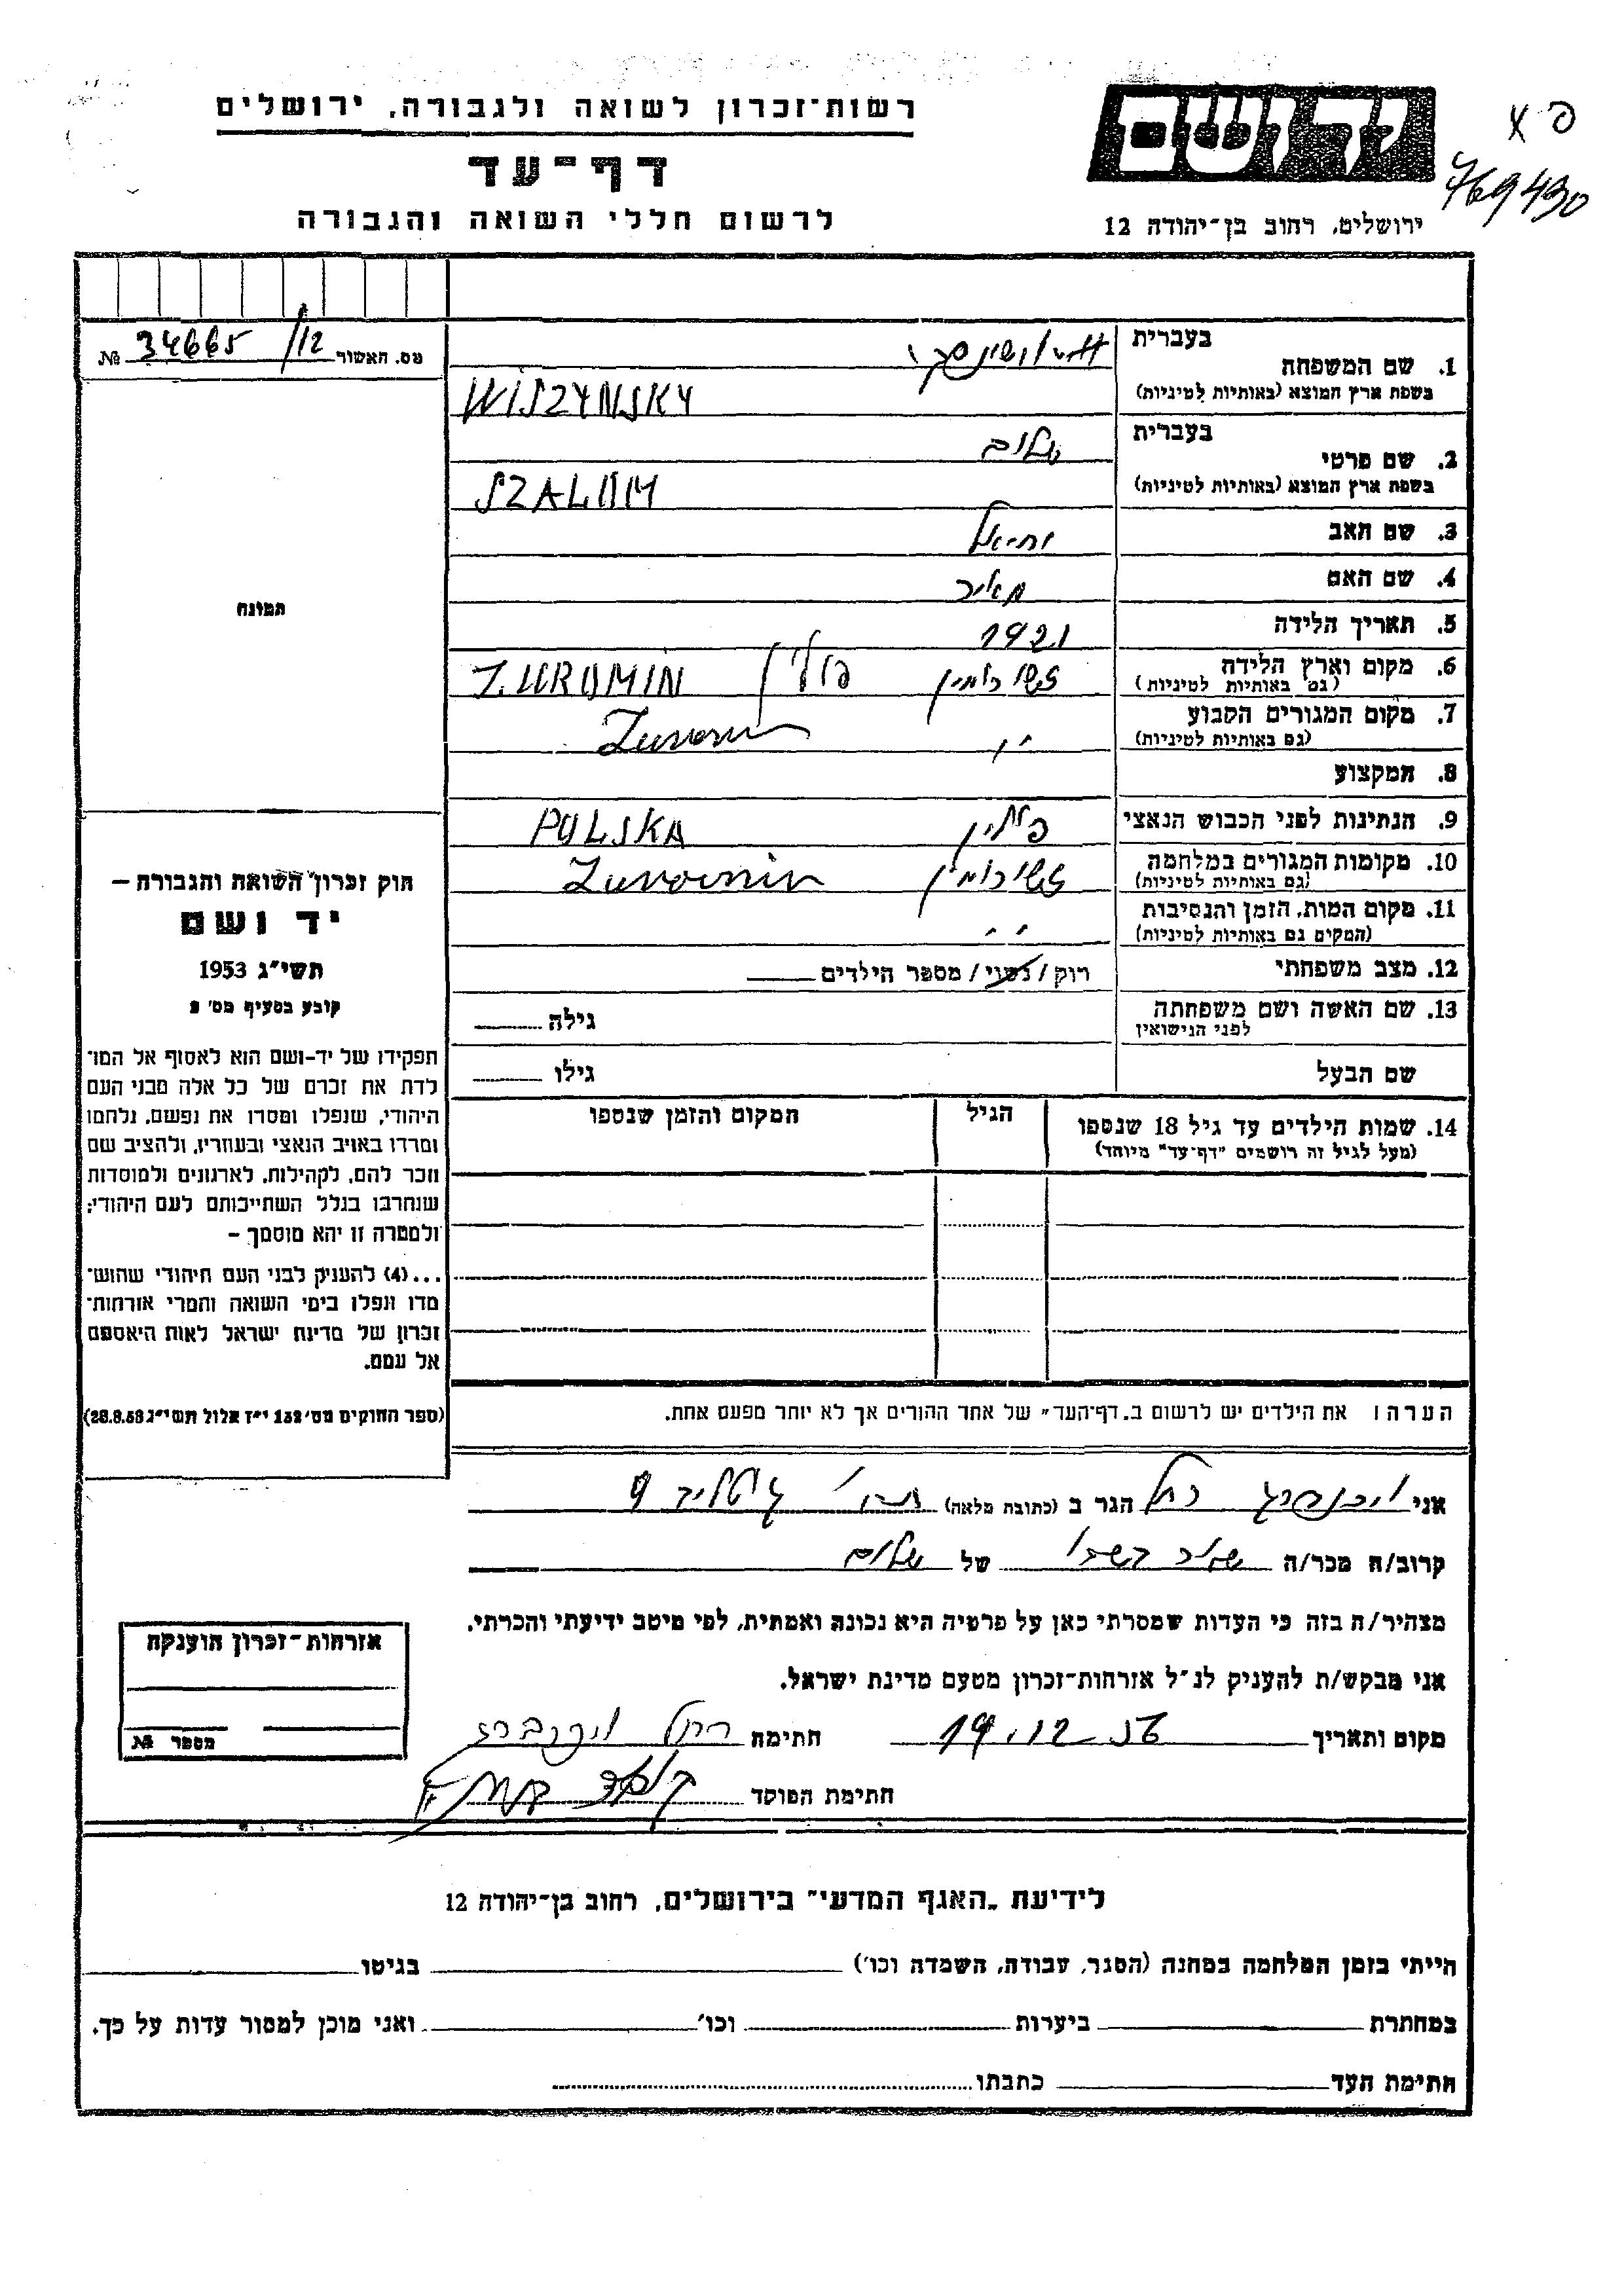 רשות־זכרון לשואה ולגבורה, ירושלים
דף־עד
לרשום חללי השואה והגבורה
ידושם
ירושלים, רחוב בן־יהודה 12
769430
מס. האשור 34665/12 №
1. שם המשפחה בעברית
בשפת ארץ המוצא (באותיות לטיניות) WISZYNSKY
2. שם פרטי בעברית שלום
בשפת ארץ המוצא (באותיות לטיניות) SZALOM
3. שם האב
4. שם האם
5. תאריך הלידה 1921
6. מקום וארץ הלידה פולין ZUROMIN
(גם באותיות לטיניות)
7. מקום המגורים הקבוע
(גם באותיות לטיניות)
8. המקצוע
9. הנתינות לפני הכבוש הנאצי פולין POLSKA
10. מקומות המגורים במלחמה
(גם באותיות לטיניות)
11. מקום המות, הזמן והנסיבות
(המקום גם באותיות לטיניות)
12. מצב משפחתי רוק / נשוי / מספר הילדים
13. שם האשה ושם משפחתה גילה
לפני הנישואין
שם הבעל גילו
14. שמות הילדים עד גיל 18 שנספו הגיל המקום והזמן שנספו
(מעל לגיל זה רושמים "דף־עד" מיוחד)
הערה: את הילדים יש לרשום ב„דף־העד" של אחד ההורים אך לא יותר מפעם אחת.
תמונה
חוק זכרון השואה והגבורה –
יד ושם
תשי"ג 1953
קובע בסעיף מס' 2
תפקידו של יד-ושם הוא לאסוף אל המו־
לדת את זכרם של כל אלה מבני העם
היהודי, שנפלו ומסרו את נפשם, נלחמו
ומרדו באויב הנאצי ובעוזריו, ולהציב שם
וזכר להם, לקהילות, לארגונים ולמוסדות
שנחרבו בגלל השתייכותם לעם היהודי;
ולמטרה זו יהא מוסמך –
...(4) להעניק לבני העם היהודי שהוש־
מדו ונפלו בימי השואה והמרי אזרחות־
זכרון של מדינת ישראל לאות היאספם
אל עמם.
(ספר החוקים מס' 132 י"ז אלול תשי"ג 28.8.53)
אני רחל הגר ב (כתובת מלאה) 9
קרוב/ה מכר/ה של שלום
מצהיר/ה בזה כי העדות שמסרתי כאן על פרטיה היא נכונה ואמתית, לפי מיטב ידיעתי והכרתי.
אני מבקש/ת להעניק לנ"ל אזרחות־זכרון מטעם מדינת ישראל.
מקום ותאריך 19.12.56 חתימה רחל
חתימת הפוקד
אזרחות־זכרון הוענקה
מספר №
לידיעת „האגף המדעי" בירושלים, רחוב בן־יהודה 12
הייתי בזמן המלחמה במחנה (הסגר, עבודה, השמדה וכו') בגיטו
במחתרת ביערות וכו' ואני מוכן למסור עדות על כך.
חתימת העד כתבתו